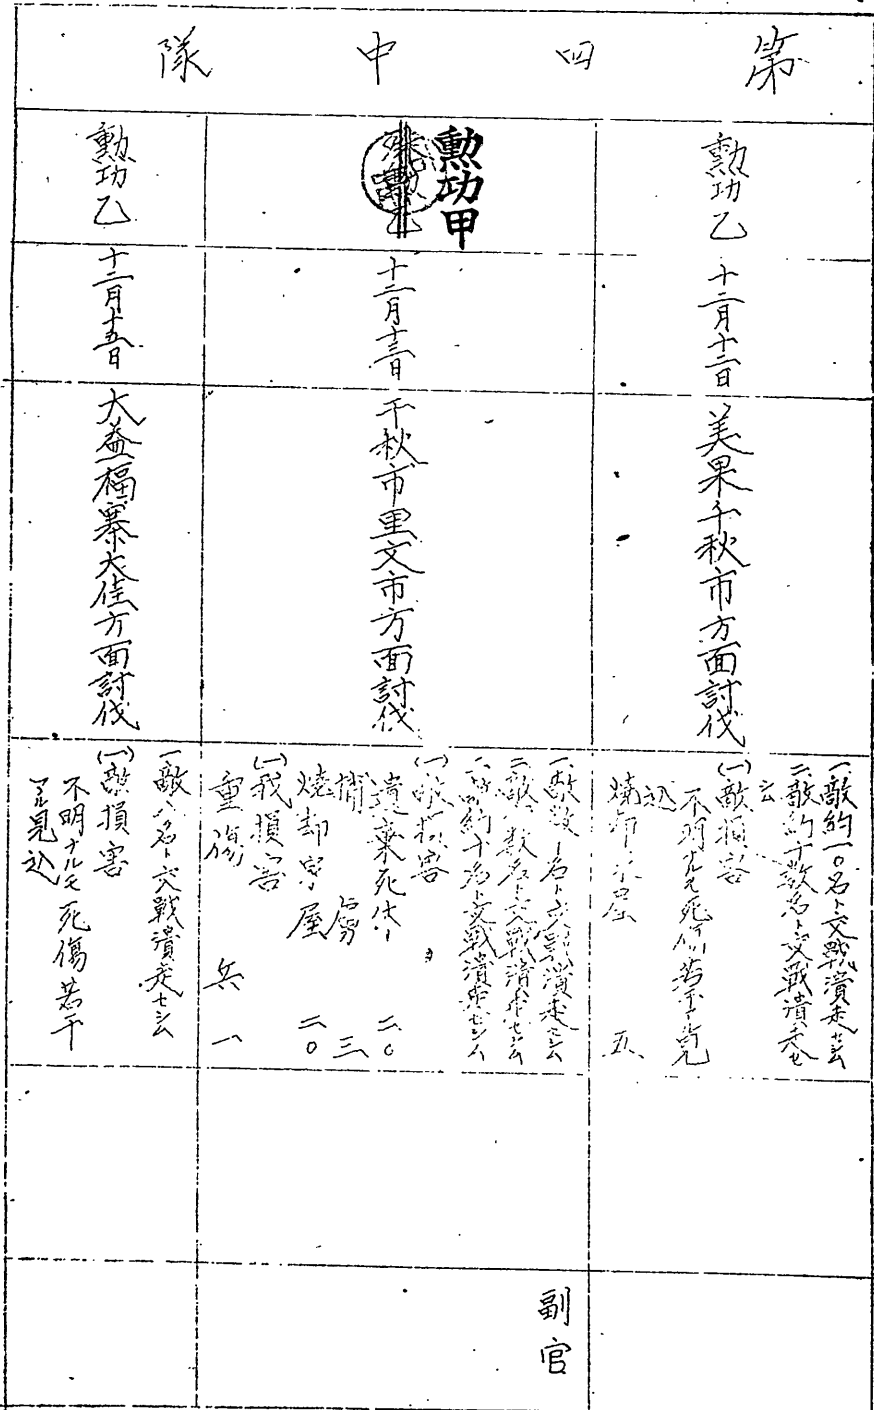 第四中隊
勲功乙
十二月十二日
美果千秋市方面討伐
一、敵約一〇名ト交戰潰走セシム
二、敵約十数名ト交戰潰走セ
シム
(一)敵損害
不明ナルモ死傷若干アル見
込
焼却家屋 五
勲功甲
十二月十三日
千秋市里文市方面討伐
一、敵数十名ト交戰潰走セシム
二、敵十数名ト交戰潰走セシム
三、敵約十名ト交戰潰走セシム
(一)敵損害
遺棄死体 二〇
捕虜 三
焼却家屋 二〇
(一)我損害
重傷 兵 一
副官
勲功乙
十二月十五日
大益福寨大佳方面討伐
一敵八名ト交戰潰走セシム
(一)敵損害
不明ナルモ死傷若干
アル見込